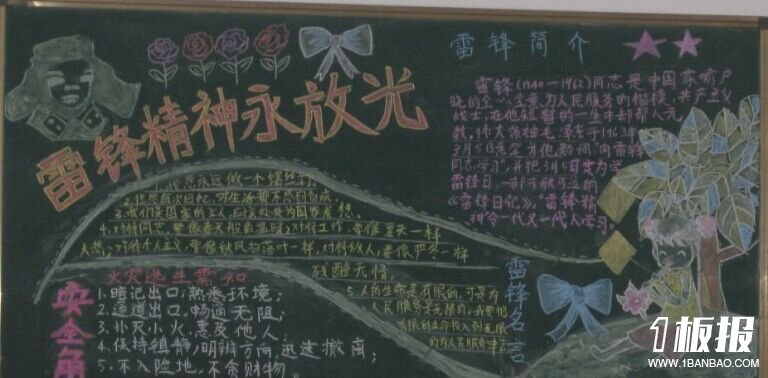 雷锋精神永放光
雷锋简介
雷锋(1940—1962)同志是中国家喻户
晓的全心全意为人民服务的楷模,共产主义
战士,在他短暂的一生中却帮人无
数,伟大领袖毛泽东于1963年
3月5日亲笔为他题词"向雷锋
同志学习",并把3月5日定为学
雷锋日,一部可歌可泣的
《雷锋日记》,"雷锋精
神"令一代又一代人学习。
1.我愿永远做一个螺丝钉。
3.我们是国家的主人,应该处处为国家着想。
4.对待同志,要像春天般的温暖;对待工作,要像夏天一样
火热;对待个人主义,要像秋风扫落叶一样,对待敌人,要像严冬一样
残酷无情。
5.人的生命是有限的,可是为
人民服务是无限的,我要把
有限的生命投入到无限
的为人民服务中去
雷锋名言
火灾逃生需知
1.暗记出口,熟悉环境;
2.通道出口,畅通无阻;
3.扑灭小火,惠及他人;
4.保持镇静,明辨方向,迅速撤离;
5.不入险地,不贪财物。
安全角
1板报
WWW.1BANBAO.COM